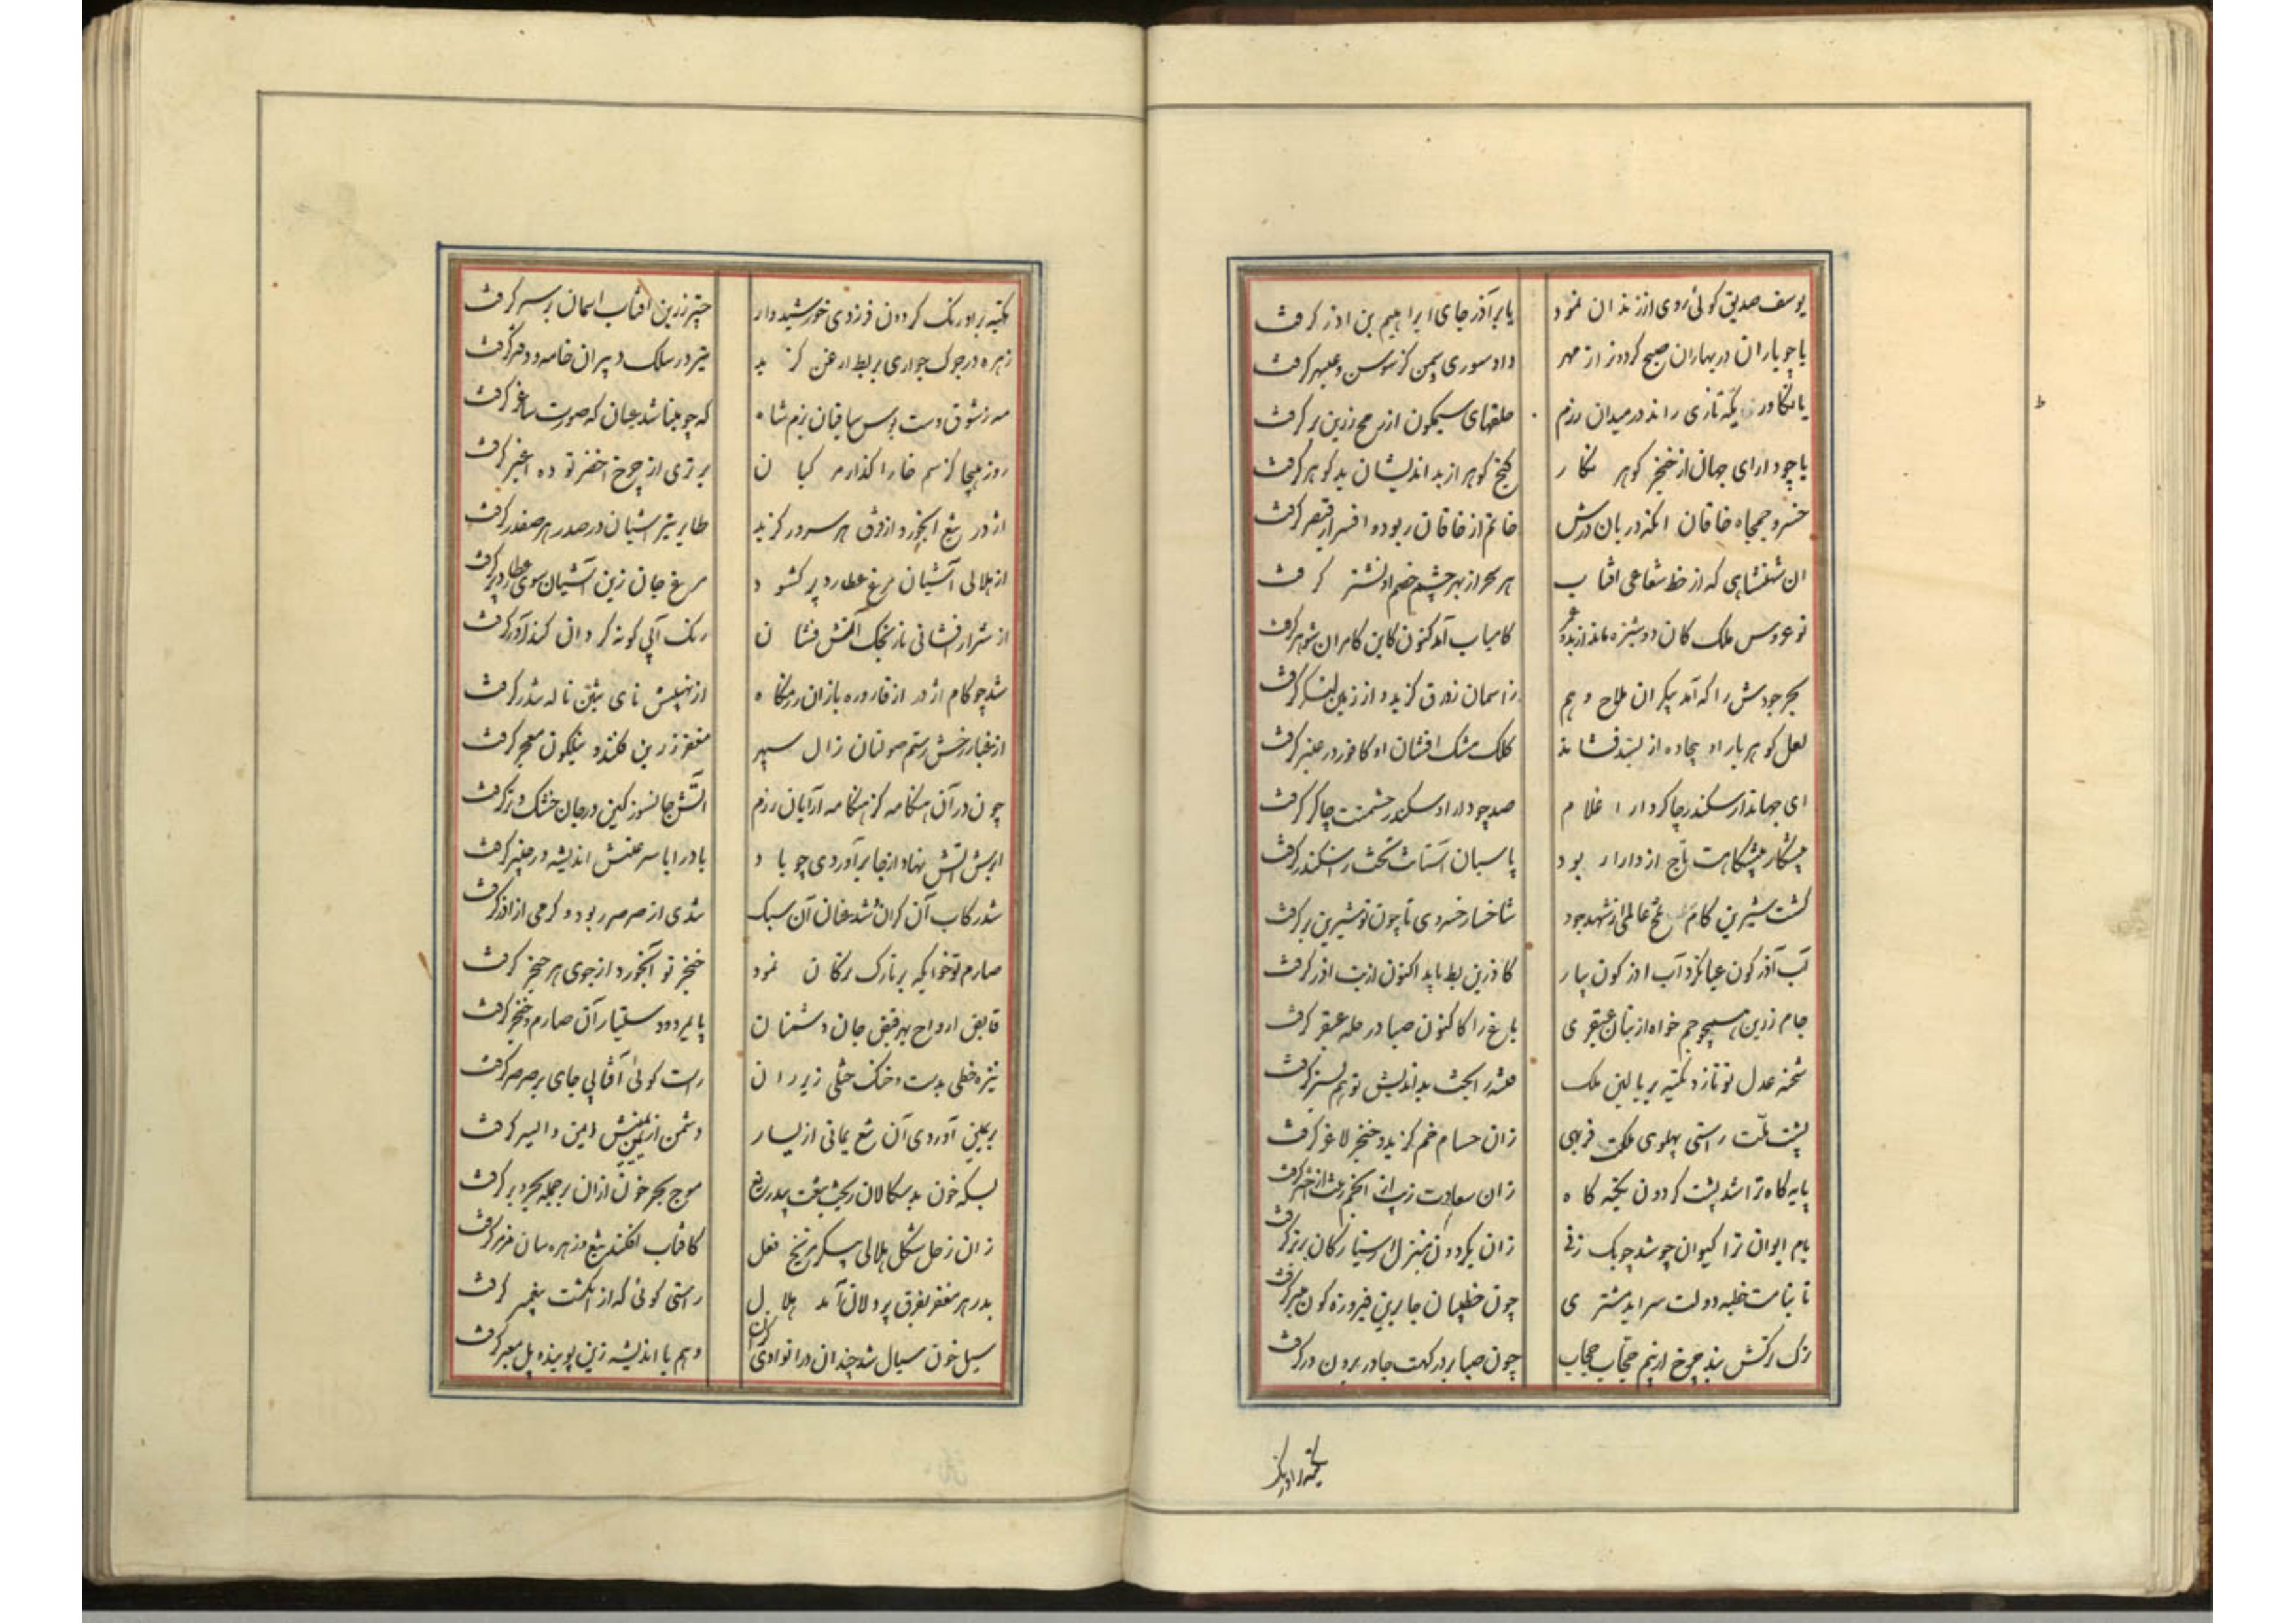 یوسف صدیق کوئی روی از زندان نمود یا بر آذر جای ابراهیم بن اذر کرفت
یا چو یاران در بهاران صبح کردون از مهر داد سوری یمن کز سوسن و عبهر کرفت
یا تکاور یکه تازی راند در میدان رزم حلقهای سیمکون از رمح زرین بر کرفت
یا چو دارای جهان از خنجر کوهر نکار کنج کوهر از بد اندیشان بد کوهر کرفت
خسرو جمجاه خاقان انکه دربان درش خاتم از خاقان ربود و افسر از قیصر کرفت
ان شهنشاهی که از خط شعاعی افتاب هر سحر از بهر چشم خصم او نشتر کرفت
نو عروس ملک کان دوشیزه ماند از بدو کامیاب آمد کنون کاین کامران شوهر کرفت
بحر جودش را که آمد بیکران ملاح وهم ز اسمان زورق کزید و از زمین لنکر کرفت
لعل کوهر بار او بیجاده از بسد فشاند کلک مشک افشان او کافور در عنبر کرفت
ای جهاندار سکندر چاکر دارا غلام صد چو دارا و سکندر حشمتت چاکر کرفت
پیشکار پیشکاهت تاج از دارا ربود پاسبان آستانت تخت از اسکندر کرفت
کشت شیرین کام تلخ عالمی از شهد جود شاخسار خسروی تا چون تو شیرین بر کرفت
آب آذر کون بیار کاذرین بط باید اکنون از بت اذر کرفت
جام زرین همچو جم خواه از بتان عبقری باغ را کاکنون صبا در حله عبقر کرفت
شحنه عدل تو تا زد تکیه بر بالین ملک فتنه را بخت بداندیش تو هم بستر کرفت
پشت ملت راستی پهلوی ملکت فربهی زان حسام خم کزید و خنجر لاغر کرفت
پایه کاه ترا شد پشت کردون تکیه کاه زان سعادت زیب از انجم
بام ایوان ترا کیوان چو شد چوبک زنی زان بکردون منزل از سیارکان برتر کرفت
تا بنامت خطبه دولت سراید مشتری چون خطیبان جا برین فیروزه کون منبر کرفت
ترک ترکش بند چرخ از بیم حجاب حجاب چون صبا بر درکهت جا در برون در کرفت
تکیه بر اورنک
تکیه بر اورنک کردون فر زدی خورشیدوار چتر زرین افتاب اسمان بر سر کرفت
زهره در جوک جواری بربط ارغن کزید تیر در سلک دبیران خامه و دفتر کرفت
مه ز شوق دست بوس ساقیان بزم شاه که چو مینا شد عیان که صورت ساغر کرفت
روز هیجا کز سم خارا کذار مرکبان برتری از چرخ اخضر توده اغبر کرفت
اژدر تیغ ابخور از فرق هر سرور کزید طایر تیر اشیان در صدر هر صفدر کرفت
از هلالی آشیان مرغ عطارد پر کشود مرغ جان زین آشیان سوی عطارد پر کرفت
از شرار افشانی نارنجک آتش فشان رنک آبی کونه کردان کند آور کرفت
شد چو کام اژدر از قاروره بازان رزمکاه از نهیبش نای تنین ناله تندر کرفت
از غبار رخش رستم صولتان زال سپهر مغفر زرین فکند و نیلکون معجر کرفت
چون در آن هنکامه کز هنکامه آرایان رزم آتش جانسوز کین در جان خشک و تر کرفت
ابرش آتش نهاد از جا برآوردی چو باد باد را با سرعتش اندیشه در چنبر کرفت
شد رکاب آن کران شد عنان آن سبک تندی از صرصر ربود و کرمی از اذر کرفت
صارم تو خوابکه بر تارک ترکان نمود خنجر تو آبخورد از جوی هر حنجر کرفت
قابض ارواح بهر قبض جان دشمنان پایمردو دستیار آن صارم و خنجر کرفت
نیزه خطی بدست و خنک ختلی زیر ران راست کوئی آفتابی جای بر صرصر کرفت
بر یمین آوردی آن تیغ یمانی از یسار دشمن از یمنش ایمن و ایسر کرفت
بسکه خون بدسکالان ریخت تیغت بیدریغ موج بحر خون از آن بر جمله بحر و بر کرفت
زان زحل شکل هلالی پیکر مریخ فعل کافتاب افکند تیغ و زهره سان مزمر کرفت
بدر هر مغفر بفرق پردلان آمد هلال راستی کوئی که از انکشت پیغمبر کرفت
سیل خون سیال شد چندان در انوادی کزان وهم با اندیشه زین پوینده پل معبر کرفت